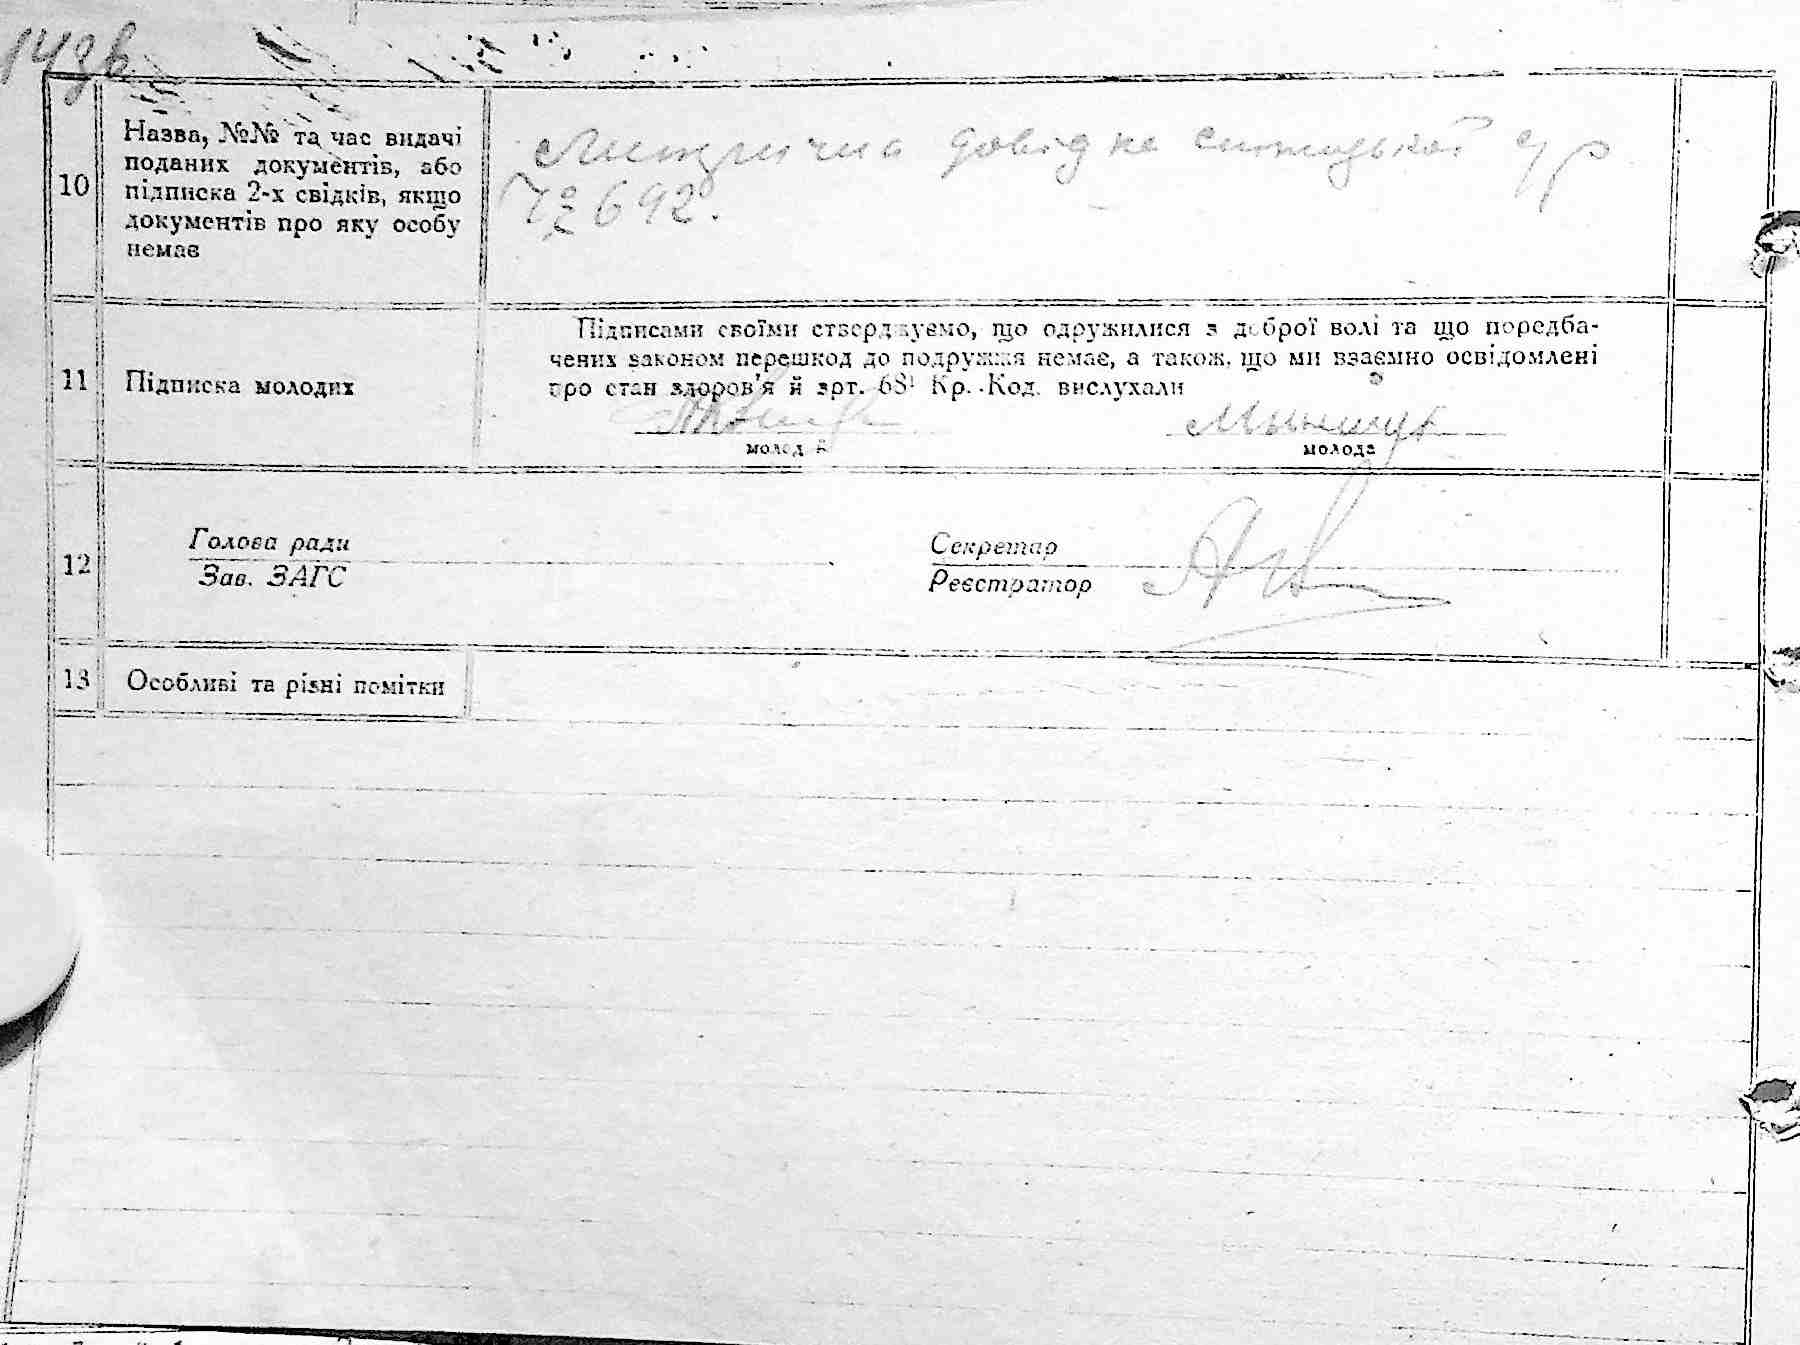 14зв
10
Назва, №№ та час видачі
поданих документів, або
підписка 2-х свідків, якщо
документів про яку особу
немає
довідка сільської с/р
692.
11
Підписка молодих
Підписами своїми стверджуємо, що одружилися з доброї волі та що передба-
чених законом перешкод до подружжя немає, а також, що ми взаємно освідомлені
про стан здоров'я й арт. 68¹ Кр. Код. вислухали
молодий
молода
12
Голова ради
Зав. ЗАГС
Секретар
Реєстратор
13
Особливі та різні помітки